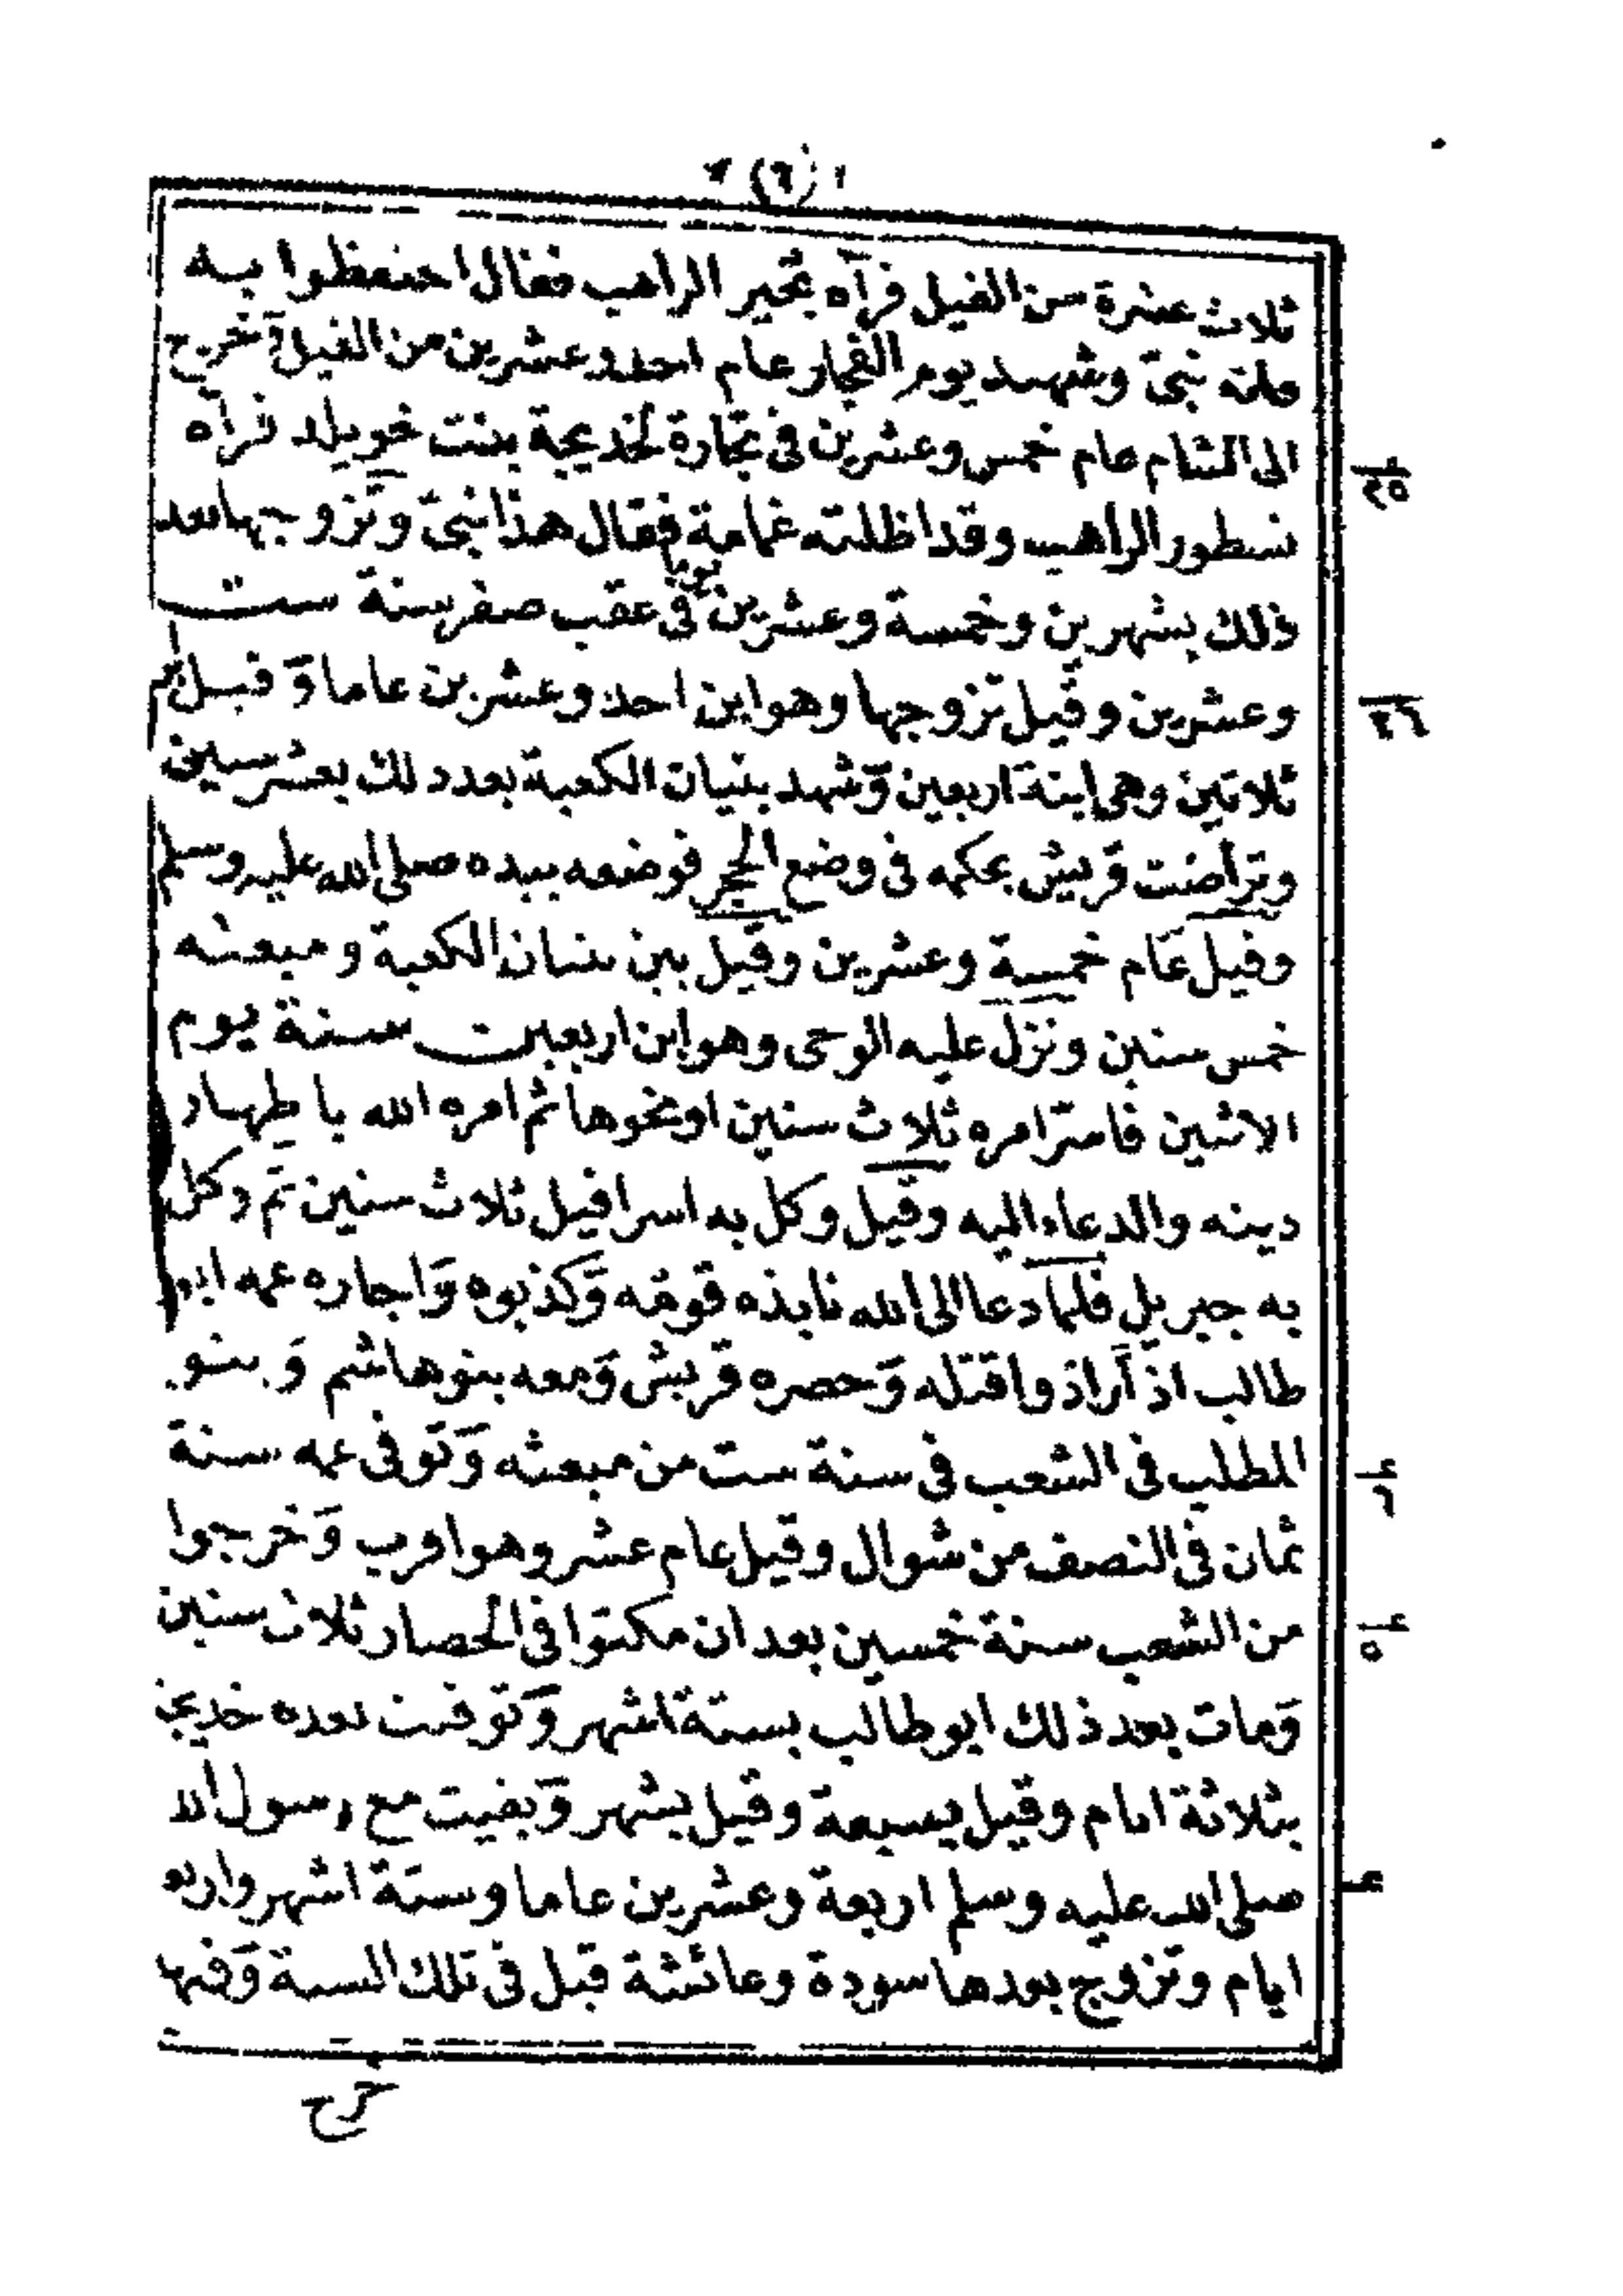 (٦)
ثلاث عشرة من الفيل فرآه بحير الراهب فقال احتفظوا به
فانه نبي وشهد يوم الفجار عام احد وعشرين من الفيل وخرج
الى الشام عام خمس وعشرين فى تجارة لخديجة بنت خويلد فرآه
نسطور الراهب وقد اظلته غمامة فقال هذا نبي وتزوجها بعد
ذلك بشهرين وخمسة وعشرين يوما فى عقب صفر سنة ست
وعشرين وقيل تزوجها وهو ابن احد وعشرين عاما وقيل ابن
ثلاثين وهى ابنة اربعين وشهد بنيان الكعبة بعد ذلك بعشر سنين
وتراضت قريش بحكمه فى وضع الحجر فوضعه بيده صلى الله عليه وسلم
وقيل عام خمسة وعشرين وقيل بين بنيان الكعبة ومبعثه
خمس سنين ونزل عليه الوحى وهو ابن اربعين سنة يوم
الاثنين فاستر امره ثلاث سنين او نحوها ثم امره الله باظهار
دينه والدعاء اليه وقيل وكل به اسرافيل ثلاث سنين ثم وكل
به جبريل فلما دعا الى الله نابذه قومه وكذبوه واجاره عمه ابو
طالب اذ ارادوا قتله وحصره قريش ومعه بنو هاشم وبنو
المطلب فى الشعب فى سنة ست من مبعثه وتوفى عمه سنة
ثمان فى النصف من شوال وقيل عام عشر وهو اقرب وخرجوا
من الشعب سنة خمسين بعد ان مكثوا فى الحصار ثلاث سنين
ومات بعد ذلك ابو طالب بستة اشهر وتوفيت بعده خديجة
بثلاثة ايام وقيل بسبعة وقيل بشهر وبقيت مع رسول الله
صلى الله عليه وسلم اربعة وعشرين عاما وستة اشهر واربعة
ايام وتزوج بعدها سودة وعائشة قبل فى تلك السنة وفيها
خرج
٢٥
٢٦
٦
٥